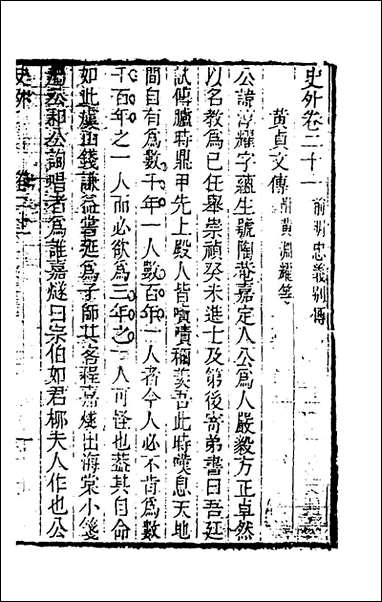 史外卷二十一 前明忠義別傳
黃貞文傳 附黃淵耀等
公諱淳耀字蘊生號陶菴嘉定人公為人嚴毅方正卓然
以名教為己任舉崇禎癸未進士及第後寄弟書曰吾廷
試傳臚時鼎甲先上殿人皆嘖嘖稱羨吾此時嘆息天地
間自有為數千年一人數百年一人者今人必不肯為數
千百年之一人而必欲為三年之一人可怪也蓋其自命
如此虞山錢謙益嘗延為子師其客程嘉燧出海棠小箋
示公和公詢唱者為誰嘉燧曰宗伯如君柳夫人作也公
史外 卷二十一